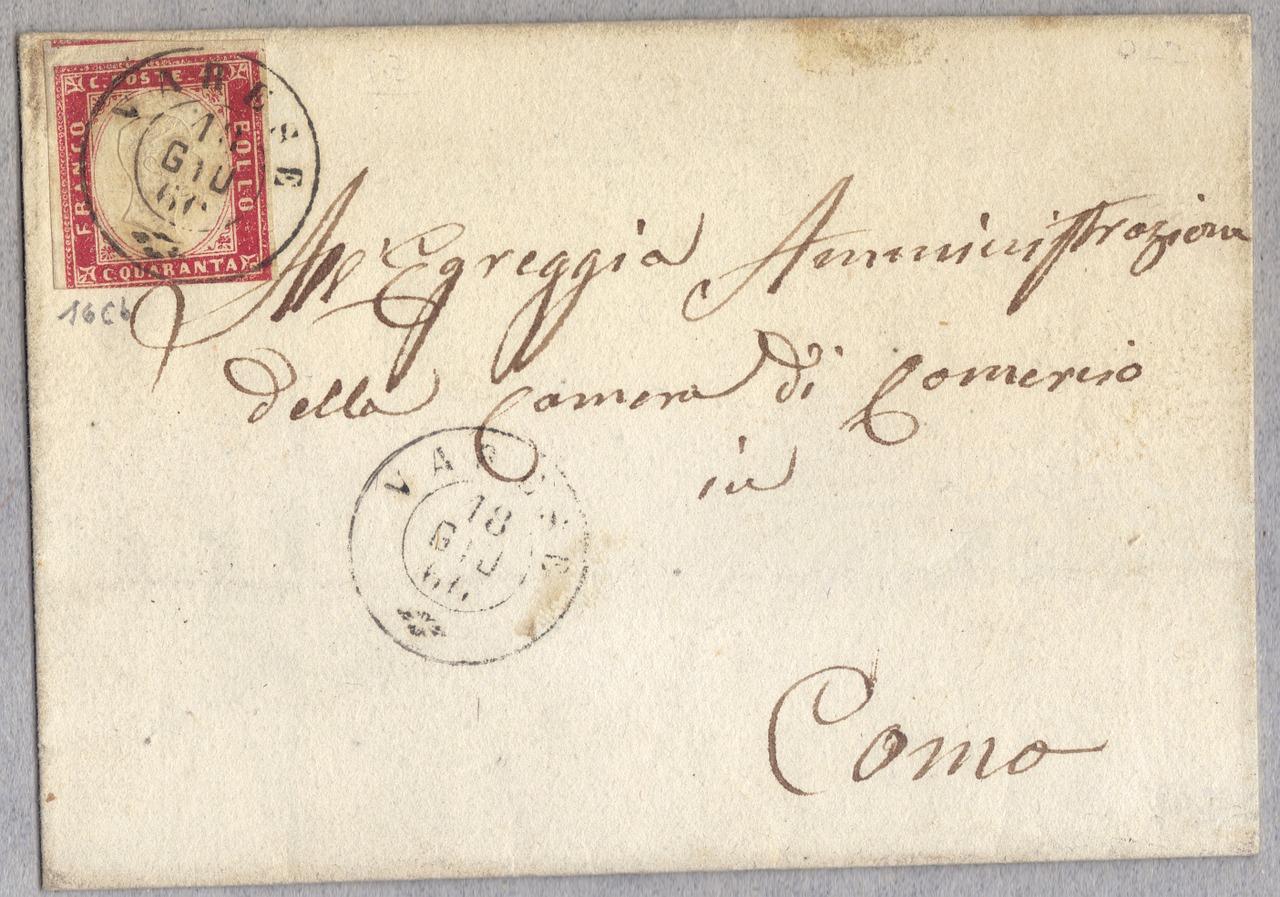 C. POSTE
FRANCO
BOLLO
C. QUARANTA
VARESE
18
GIU
60
16Cb
All Egreggia Amministrazione
della Camera di Comercio
in
VARESE
18
GIU
60
Como